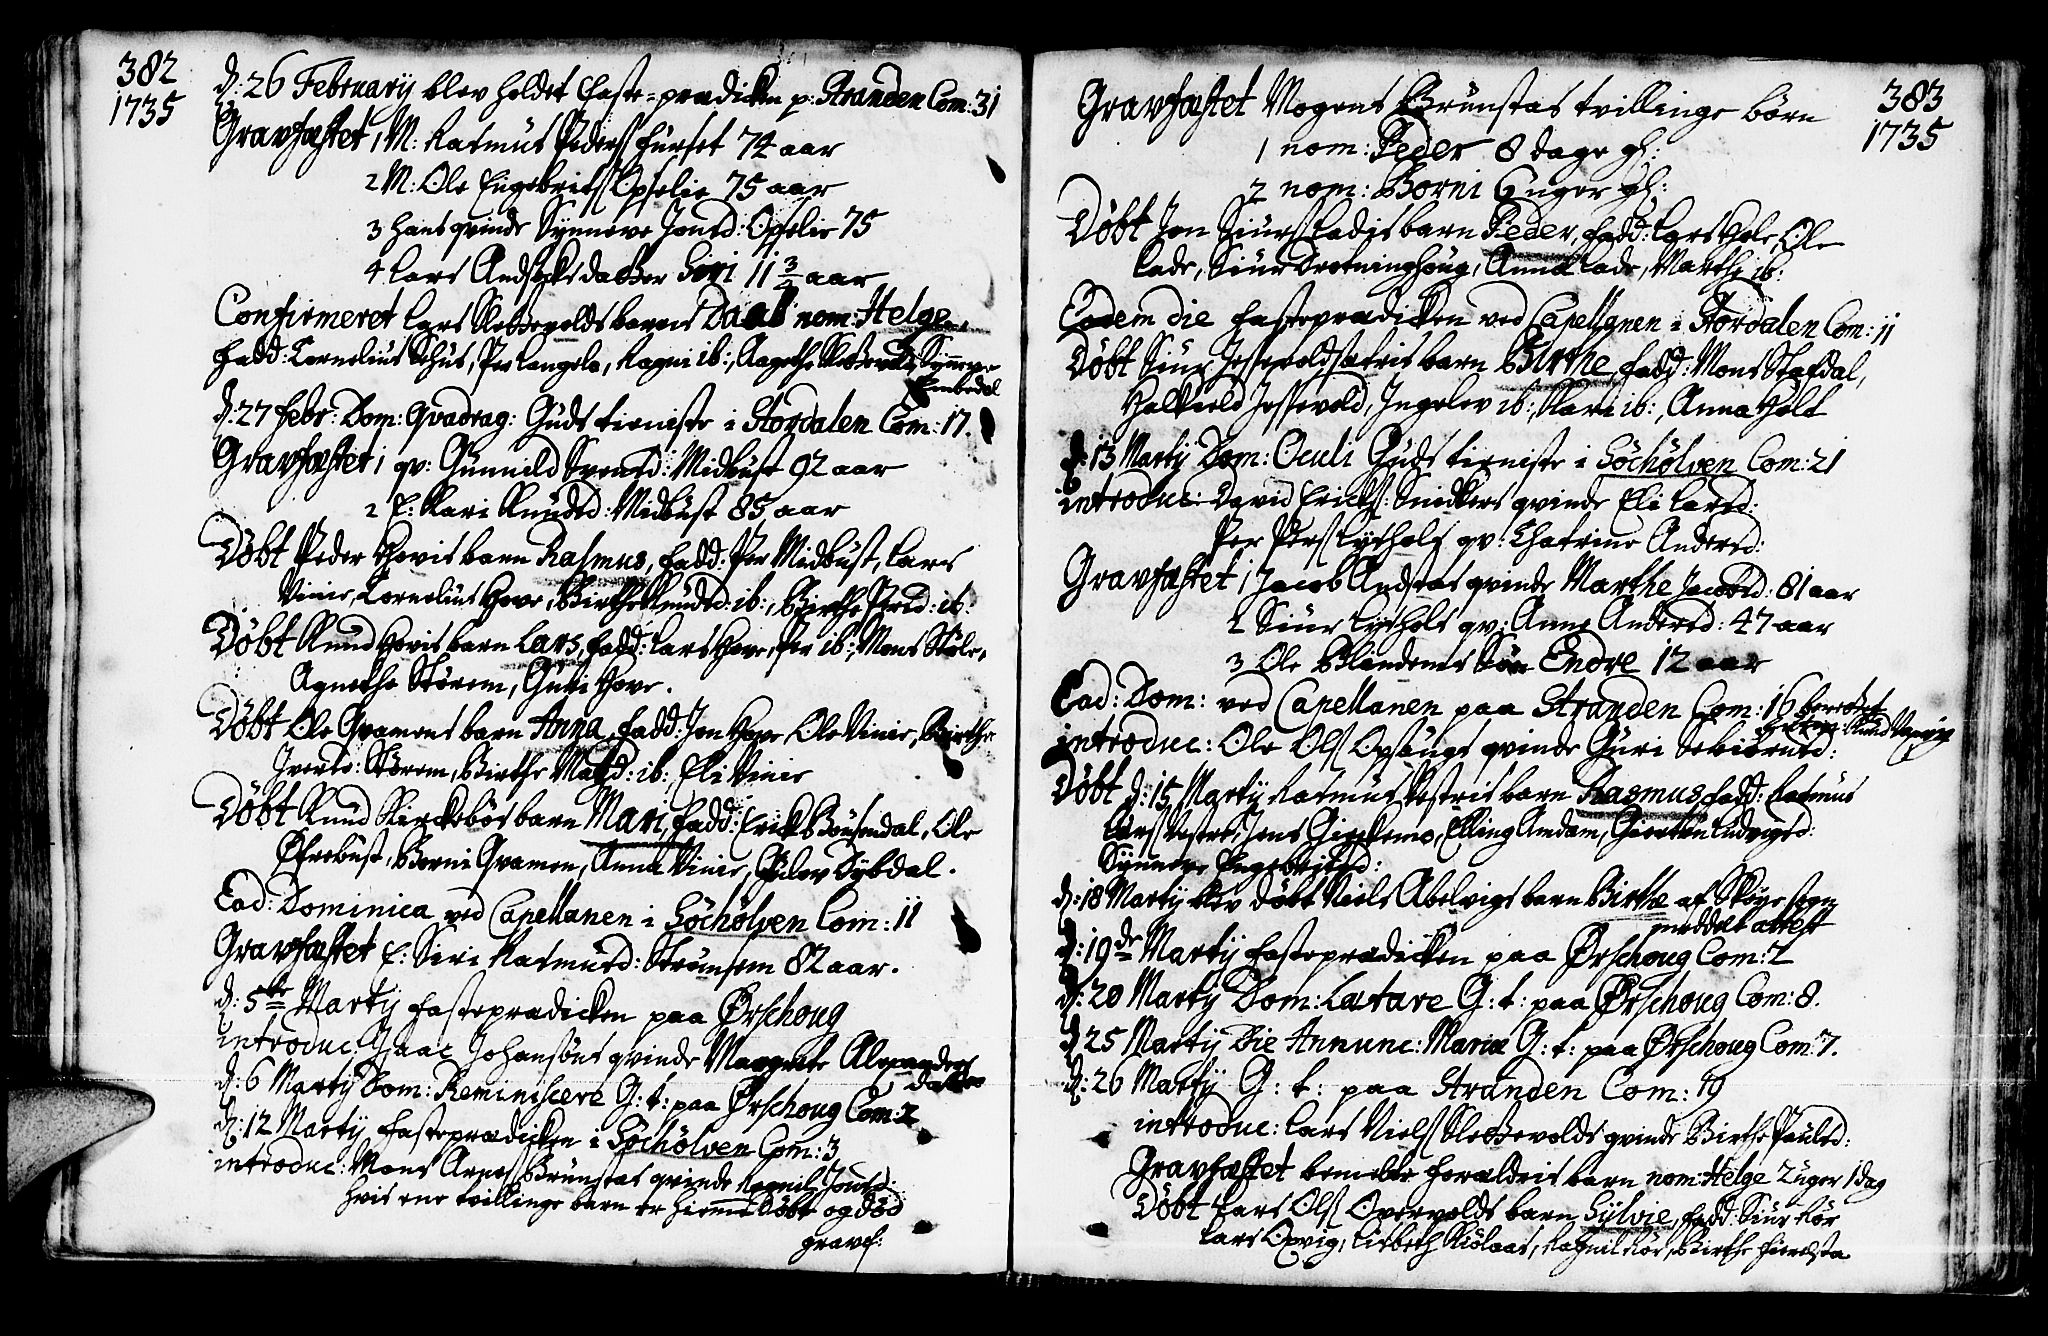 382
1735
d: 26 Februarij blev holdet faste=prædicken p: Stranden Com: 31
Gravfæstet 1 M: Rasmus Peders Furset 74 aar
2 M: Ole Engebrits Opselie 75 aar
3 hans qvinde Synneve Jonsd: Opselie 75
4 Lars Andsoks datter Siri 11 3/4 aar
Confirmeret Lars Slettevolds barns Daab nom: Helge,
fadd: Cornelius Schus, Per Langelo, Ragni ib:, Aagethe Slettevold, Synneve
Embedal
d: 27 febr: Dom: Qvadrag: Guds tieniste i Stordalen Com: 17.
Gravfæstet 1 qv: Gunnild Svensd: Midbust 92 aar
2 E: Kari Knudsd: Midbust 85 aar
Døbt Peder Hovis barn Rasmus, fadd: Per Midbust, Lars
Vinie, Cornelius Hove, Birthe Knudsd: ib:, Birthe Persd: ib:
Døbt Knud Hovis barn Lars, fadd: Lars Hove, Per ib:, Mons Støle,
Agnethe Størem, Guri Hove.
Døbt Ole Qvamens barn Anna, fadd: Jon Hove, Ole Vinie, Birthe
Iversd: Størem, Birthe Matsd: ib:, Eli Vinie
Døbt Knud Kirckebøs barn Mari, fadd: Erick Bousendal, Ole
Øfrebust, Borni Qvamen, Anna Vinie, Gulov Dybdal.
Ead: Dominica ved Capellanen i Søchølven Com: 11
Gravfæstet E: Siri Rasmusd: Strømsem 82 aar.
d: 5te Martij fasteprædicken paa Ørschoug
introduc: Isaac Johansøns qvinde Margrete Alexanders
datter
d: 6 Martij Dom: Reminiscere G: t: paa Ørschoug Com: 2
d: 12 Martij fasteprædicken i Søchølven Com: 3
introduc: Mons Arnes Brunstas qvinde Ragnil Jonsd:
hvis ene tvillinge barn er hiemme Døbt og død
gravf:
383
1735
Gravfæstet Mogens Brunstas tvillinge børn
1 nom: Peder 8 dage gl:
2 nom: Borni 6 uger gl:
Døbt Jon Siurs Ladis barn Peder, fadd: Lars Hole, Ole
Lade, Siur Drotninghoug, Anna Lade, Marthe ib:
Eodem die fasteprædicken ved Capellanen i Stordalen Com: 11
Døbt Siur Jessevoldsætris barn Birthe, fadd: Mons Stafdal,
Halkield Jessevold, Ingelev ib:, Kari ib:, Anna Holt
d: 13 Martij Dom: Oculi Guds tieniste i Søchølven Com: 21
introduc: David Ericks: Snickers qvinde Eli Larsd:
Per Pers Lycholt qv: Chatrine Andersd:
Gravfæstet 1 Jacob Andstas qvinde Marthe Jacobsd: 81 aar
2 Siur Lycholt qv: Anne Andersd: 47 aar
3 Ole Blindems Søn Endre 12 aar
Ead: Dom: ved Capellanen paa Stranden Com: 16
introduc: Ole Ols Opsangs qvinde Guri Sebiørnsd:
Døbt d: 15 Martij Rasmus Vestris barn Rasmus, fadd: Rasmus
Lars Vestre, Jens Gieskemo, Elling Amdam, Giertru Ludvigsd:
Synneve Engebritsd:
d: 18 Martij blev døbt Niels Abelvigs barn Birthe af Skoye sogn
meddelt attest
d: 19de Martij fasteprædicken paa Ørschoug Com: 2
d: 20 Martij Dom: Lætare G: t: paa Ørschoug Com: 8.
d: 25 Martij Die Annunc: Mariæ G: t: paa Ørschoug Com: 7.
d: 26 Martij G: t: paa Stranden Com: 19
introduc: Lars Niels Slettevolds qvinde Birthe Paulsd:
Gravfæstet bemelte forældris barn nom: Helge 2 uger 1 dag
Døbt Lars Ols Overvolds barn Sylvie, fadd: Siur Rør
Lars Opvig, Lisbeth Kiølaas, Ragnil Rør, Birthe Fierelsta